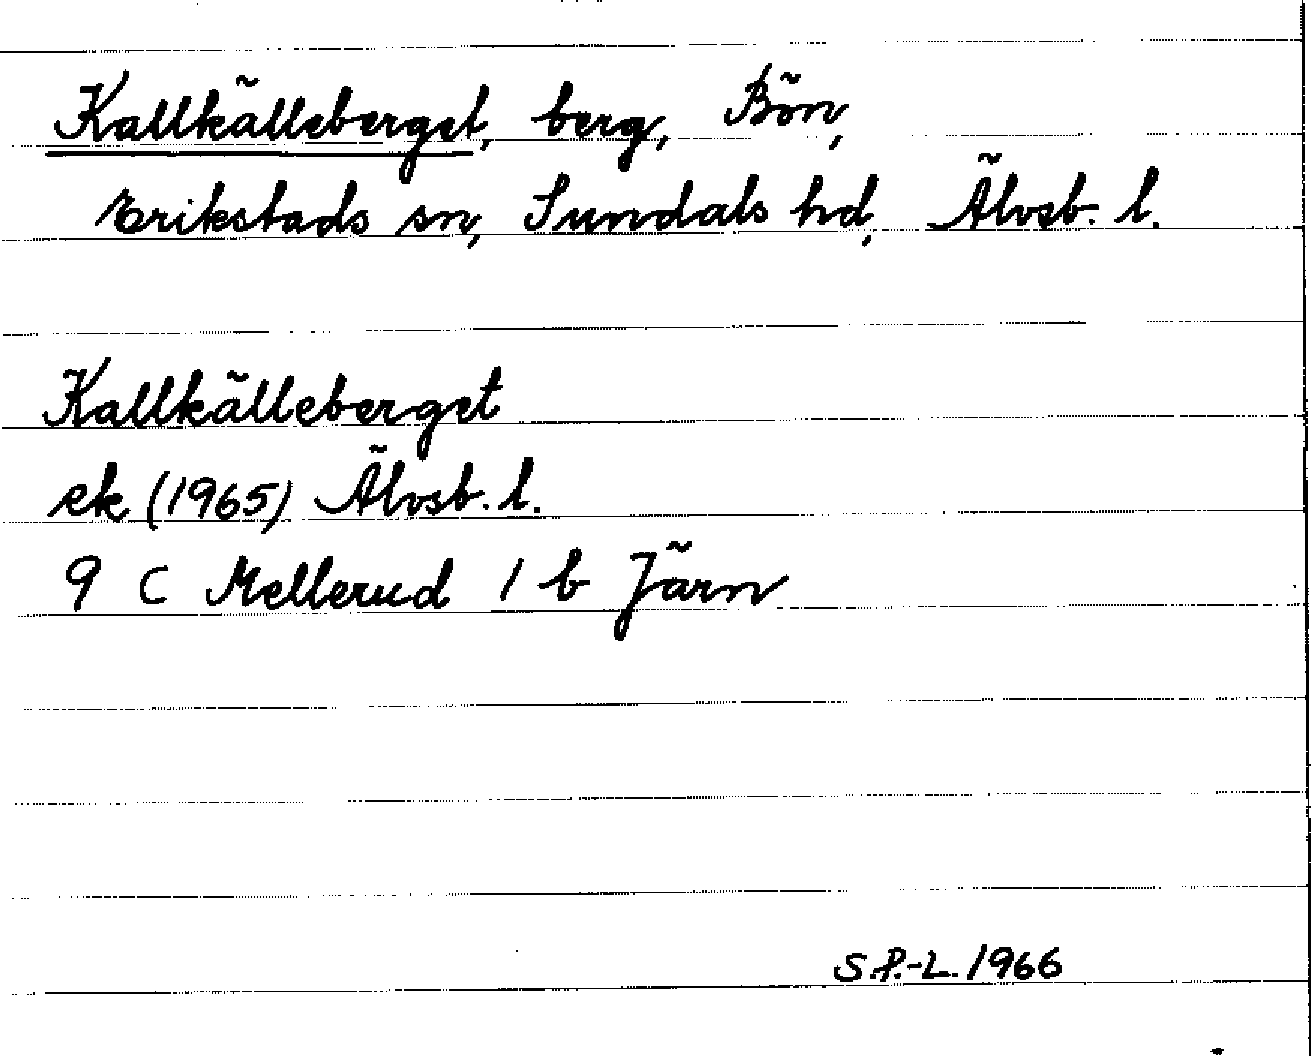 Kallkälleberget, berg, Bön,
Erikstads sn, Sundals hd, Älvsb. l.
Kallkälleberget
ek (1965) Älvsb. l.
9 C Mellerud 1 b Järn
S.P.-L. 1966